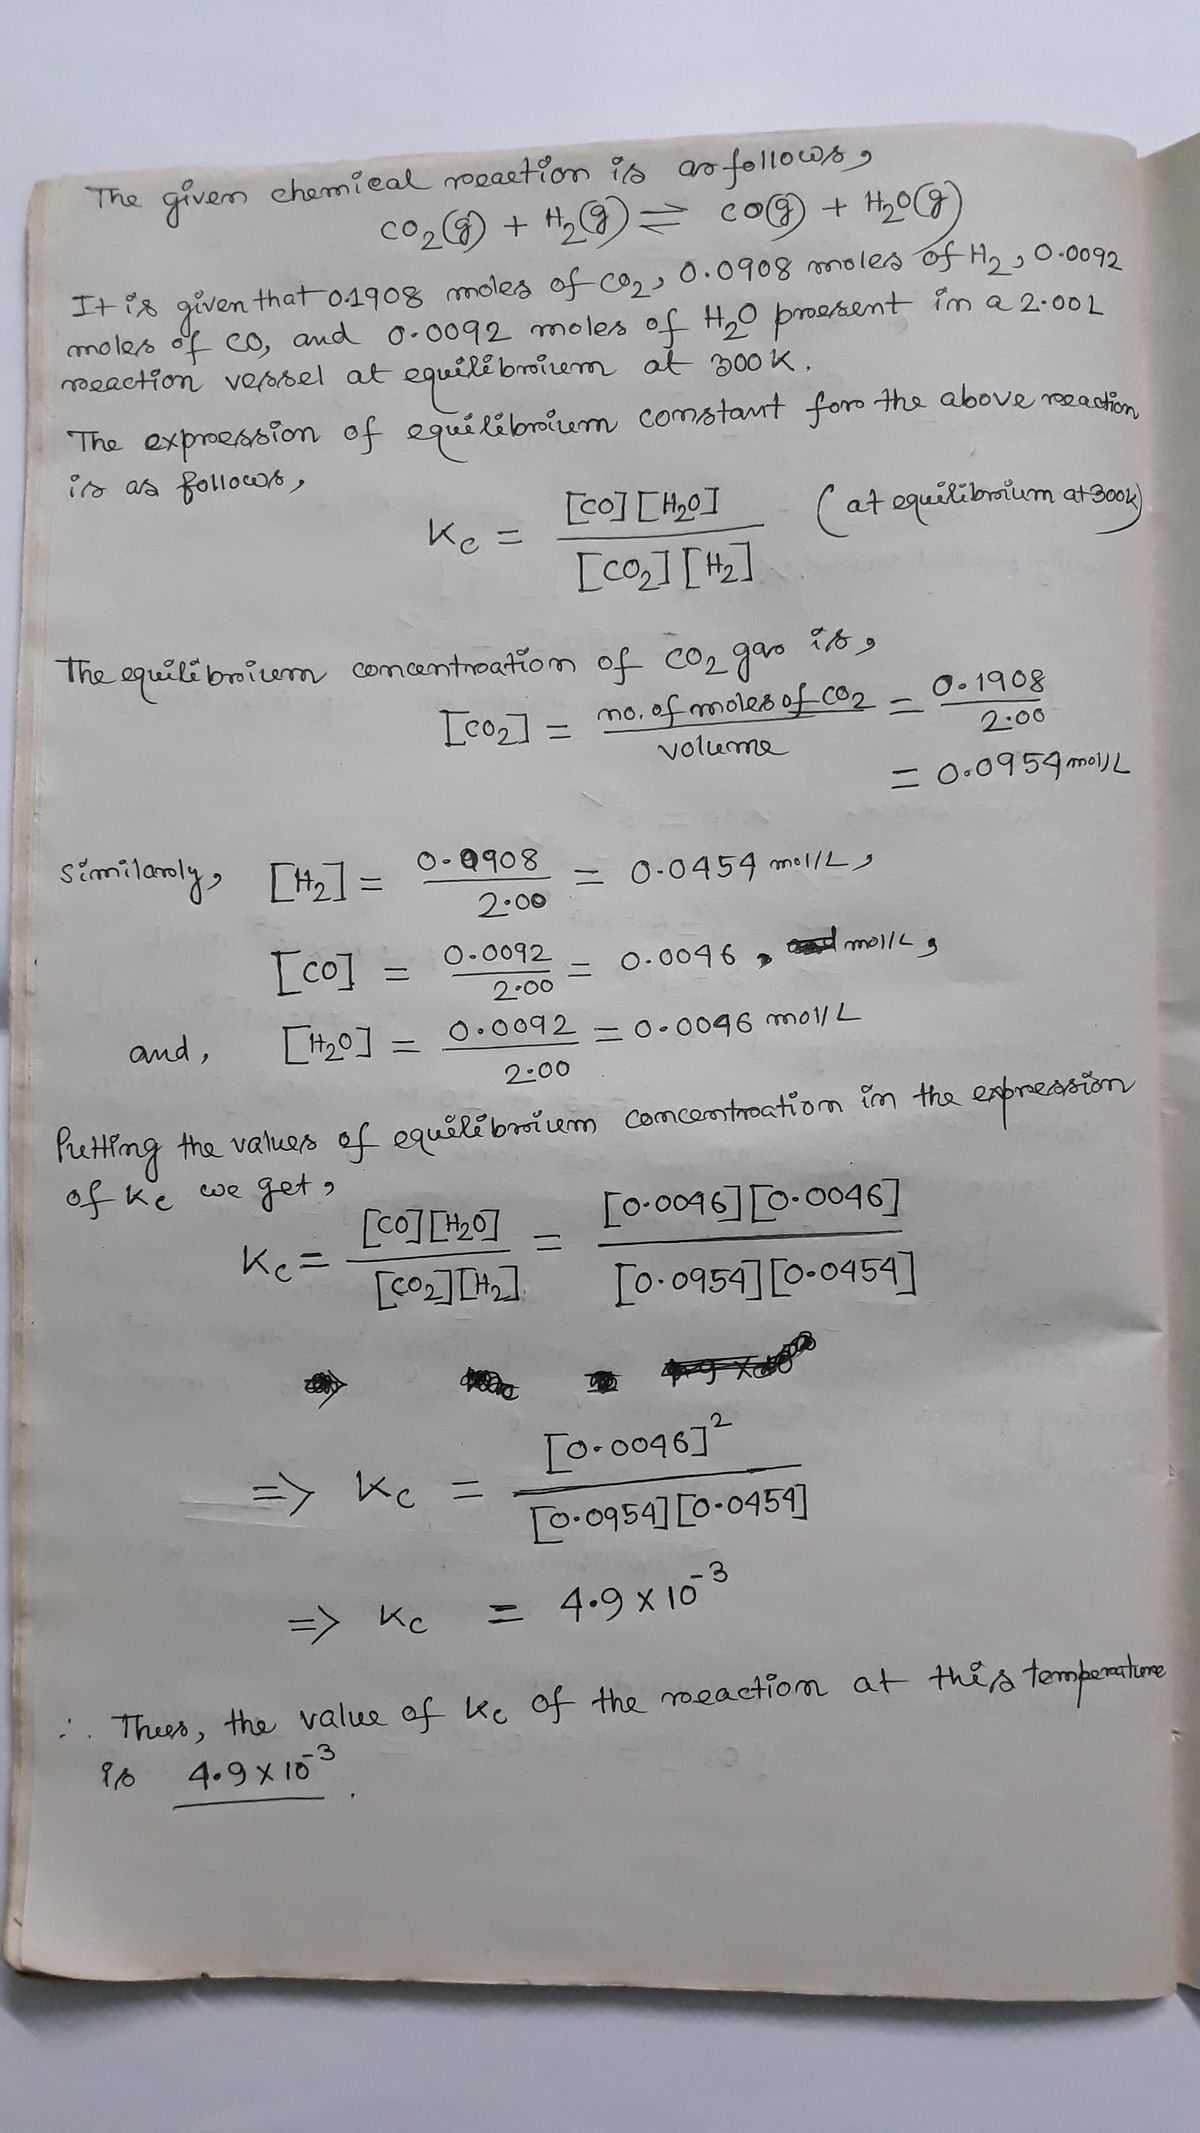 The given chemical reaction is as follows,
CO2(g) + H2(g) ⇌ CO(g) + H2O(g)
It is given that 0.1908 moles of CO2, 0.0908 moles of H2, 0.0092
moles of CO, and 0.0092 moles of H2O present in a 2.00L
reaction vessel at equilibrium at 300K.
The expression of equilibrium constant for the above reaction
is as follows,
Kc = [CO][H2O] / [CO2][H2] (at equilibrium at 300K)
The equilibrium concentration of CO2 gas is,
[CO2] = no. of moles of CO2 / volume = 0.1908 / 2.00
= 0.0954 mol/L
Similarly, [H2] = 0.0908 / 2.00 = 0.0454 mol/L,
[CO] = 0.0092 / 2.00 = 0.0046, mol/L,
and, [H2O] = 0.0092 / 2.00 = 0.0046 mol/L
Putting the values of equilibrium concentration in the expression
of Kc we get,
Kc = [CO][H2O] / [CO2][H2] = [0.0046][0.0046] / [0.0954][0.0454]
=> Kc = [0.0046]² / [0.0954][0.0454]
=> Kc = 4.9 x 10⁻³
∴ Thus, the value of Kc of the reaction at this temperature
is 4.9 x 10⁻³.